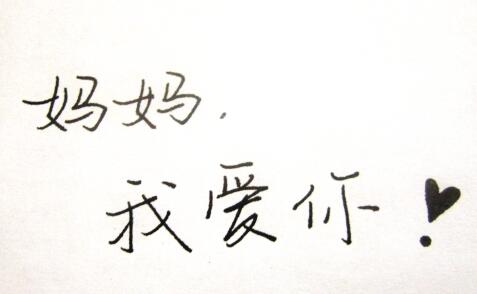 妈妈.
我爱你!